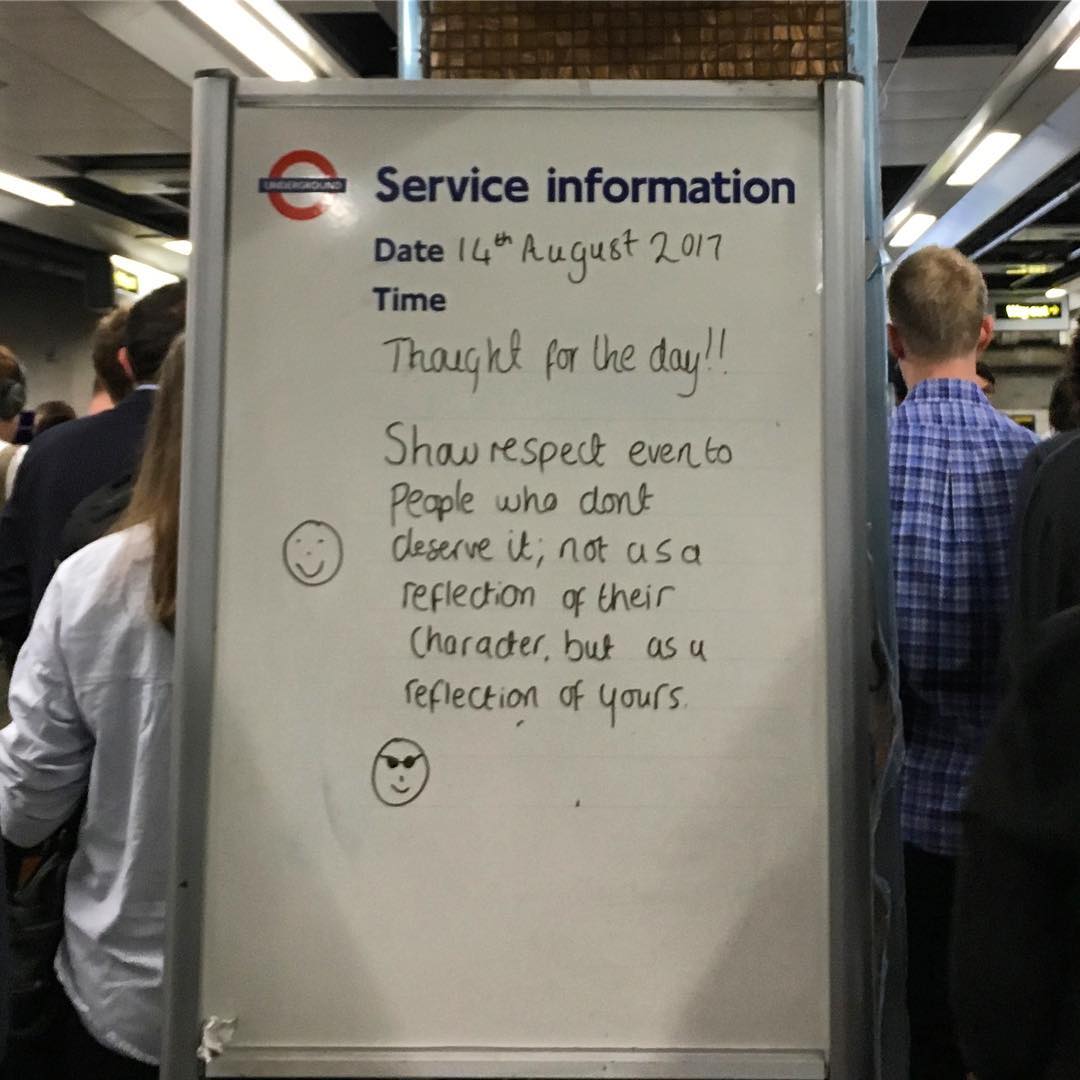 UNDERGROUND
Service information
Date 14th August 2017
Time
Thought for the day!!
Show respect even to
People who dont
deserve it; not as a
reflection of their
Character, but as a
reflection of yours.
Way out →